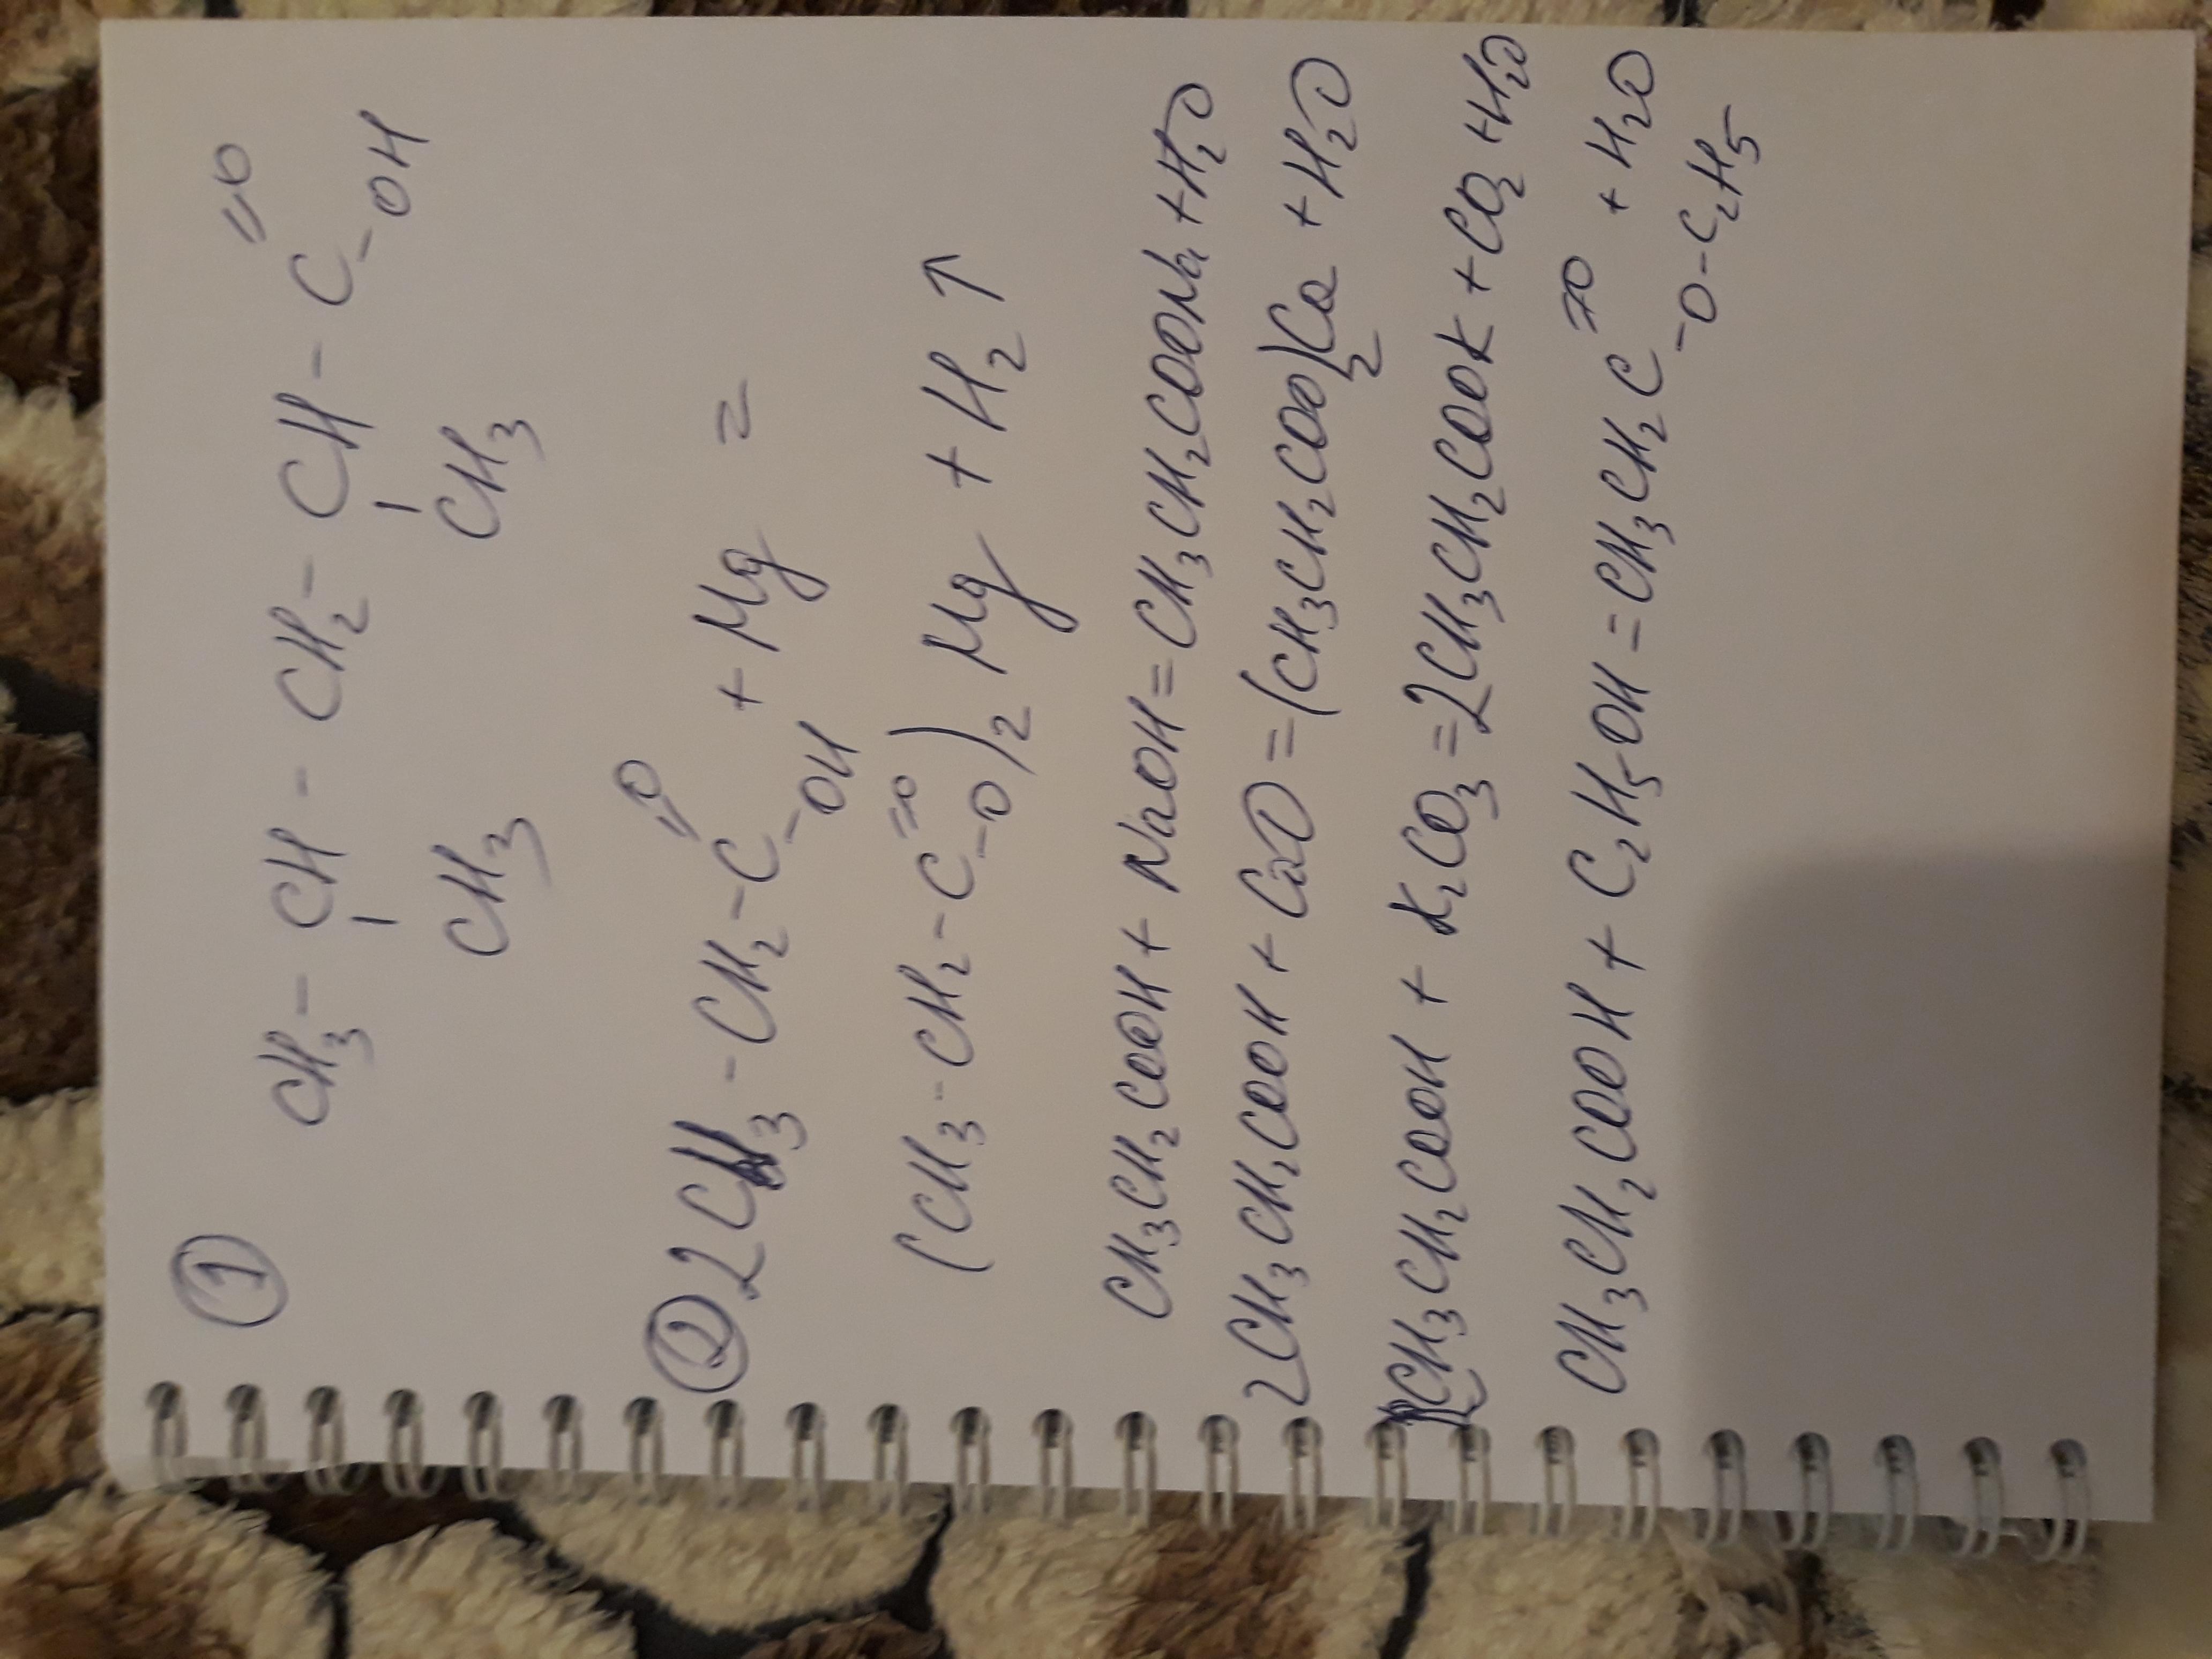 1
=O
CH3 - CH - CH2 - CH - C
- OH
CH3 CH3
2 2CH3 - CH2 - C =O - OH + Mg =
(CH3 - CH2 - C =O - O)2 Mg + H2 ↑
CH3CH2COOH + NaOH = CH3CH2COONa + H2O
2CH3CH2COOH + CaO = (CH3CH2COO)2Ca + H2O
2CH3CH2COOH + K2CO3 = 2CH3CH2COOK + CO2 + H2O
CH3CH2COOH + C2H5OH = CH3CH2C =O + H2O
- O - C2H5